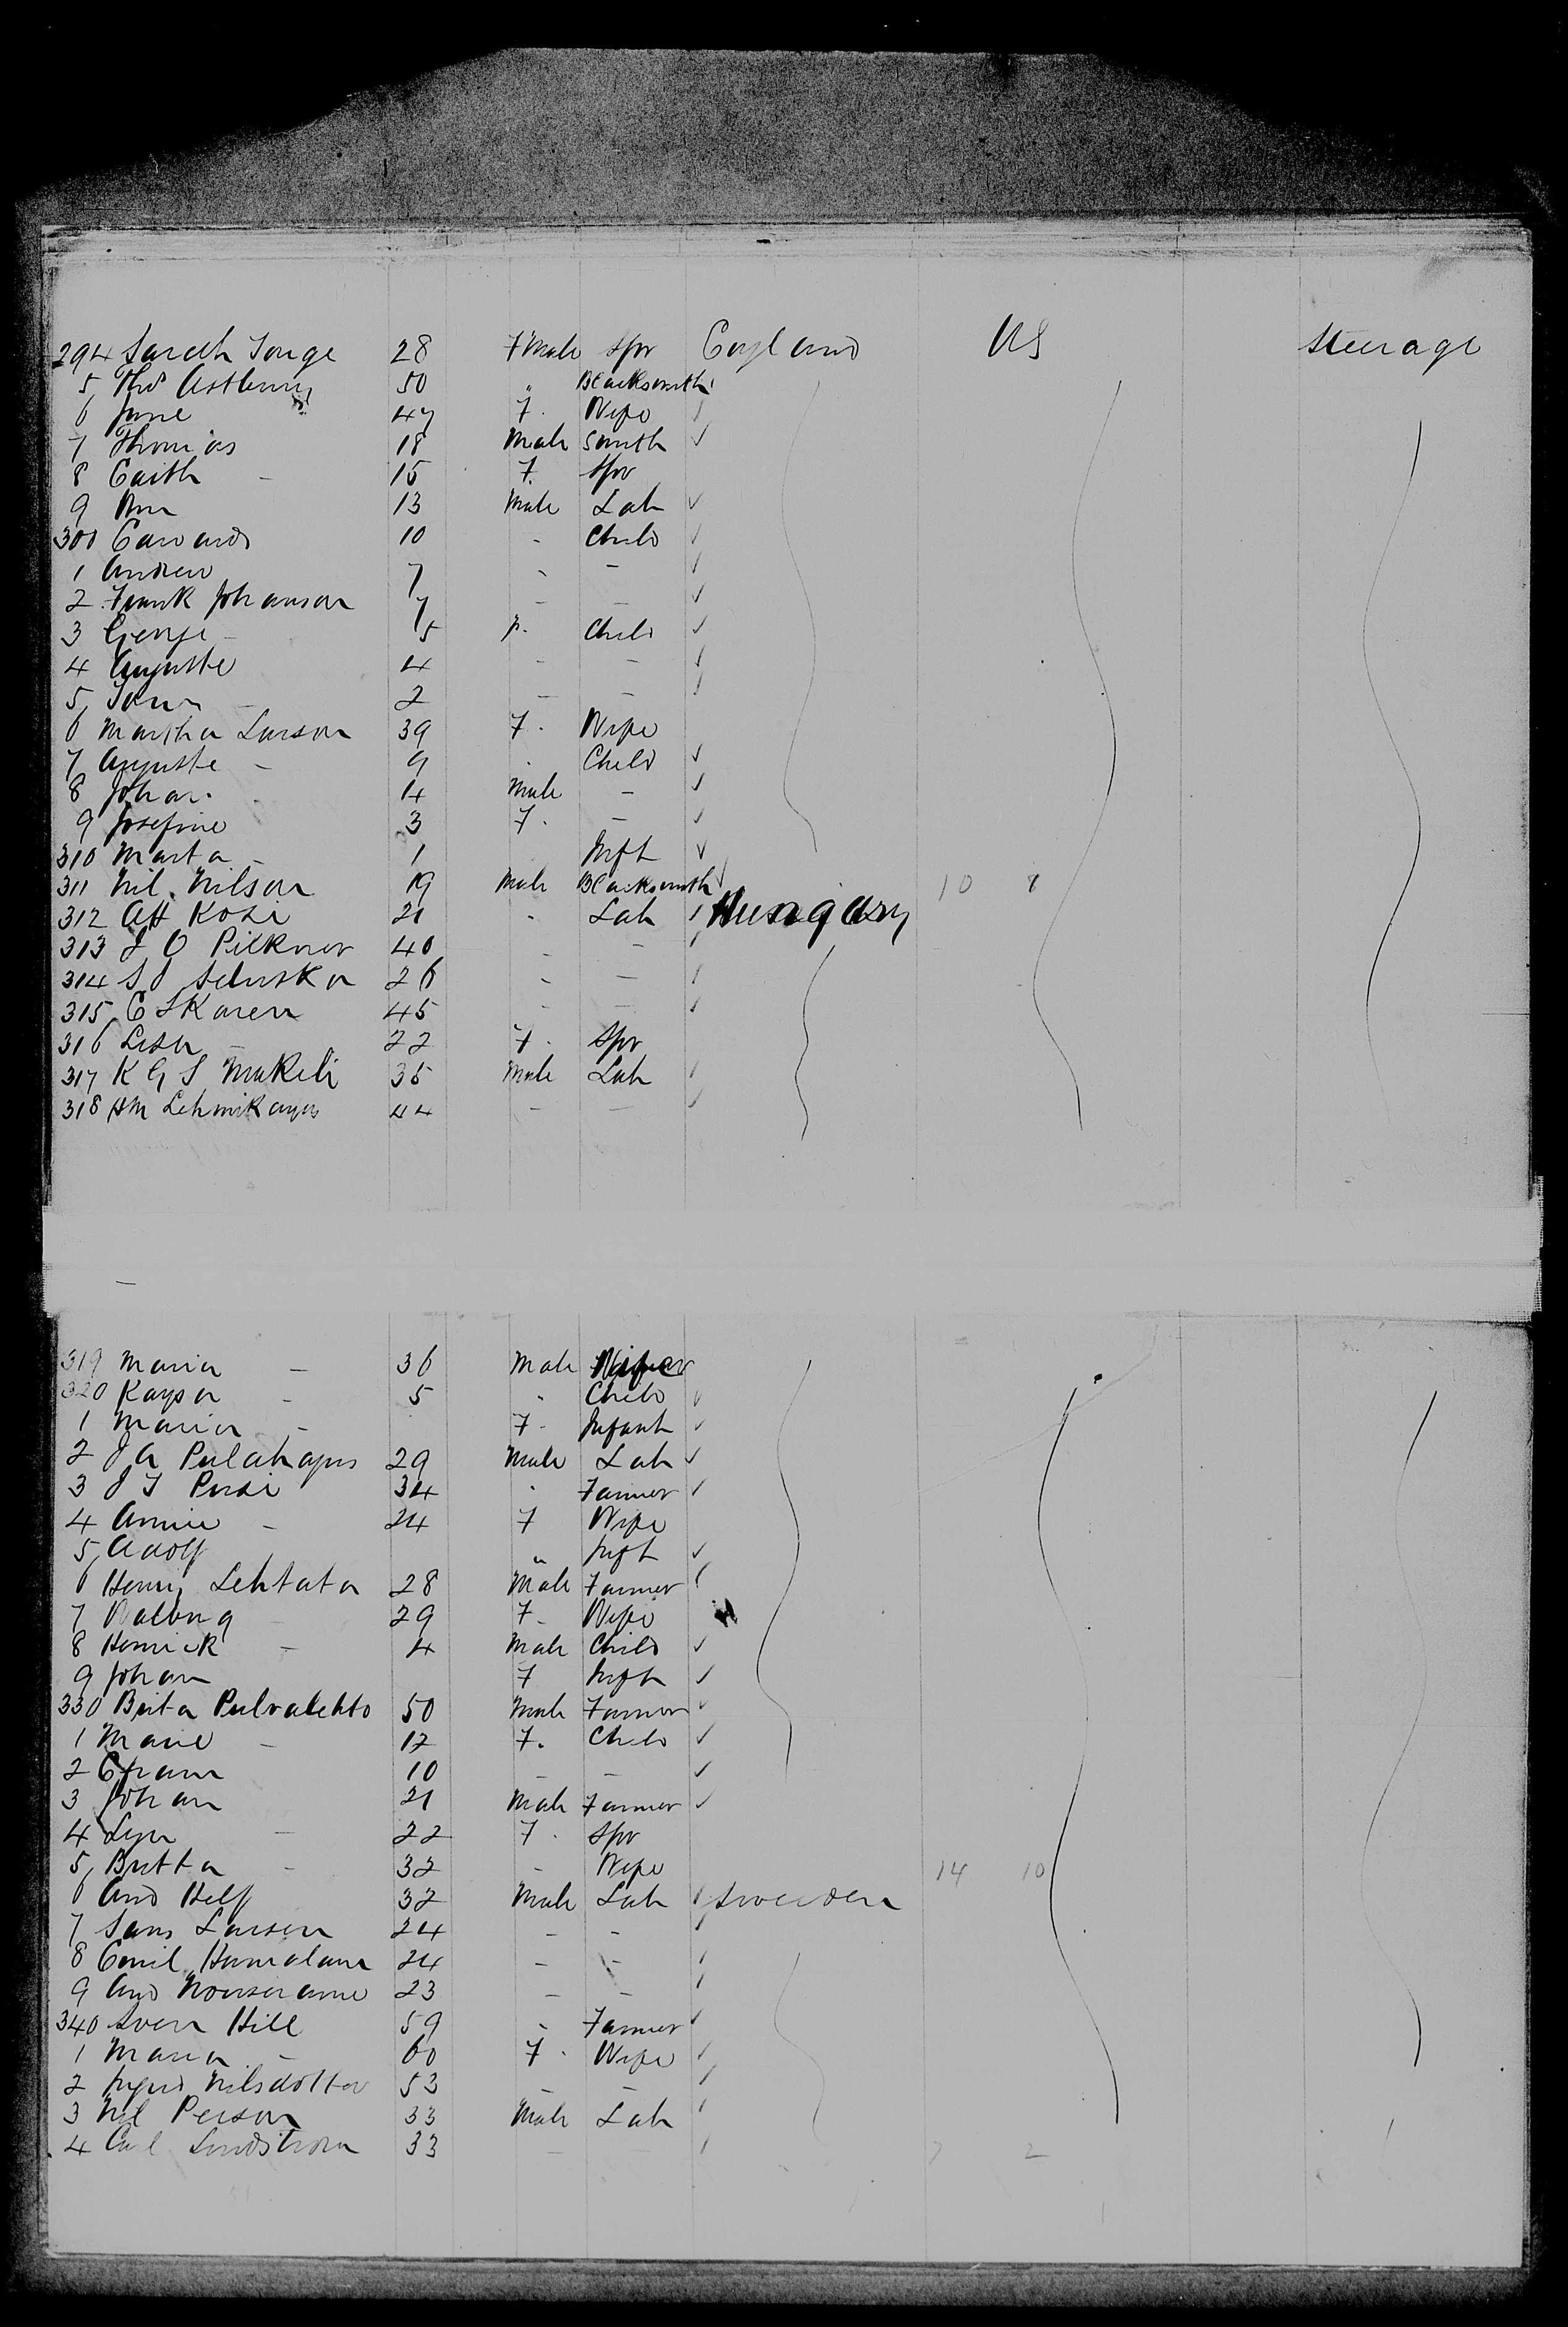 294 Sarath Tonge 28 Fmale Spr England US Steerage
5 Thos Astbury 50 " Blacksmith
6 Jane 47 F. Wife
7 Thomas 18 Male Smith
8 Edith - 15 F. Spr
9 13 Male Lab
300 Edward 10 - Child
1 Andrew 7 - -
2 Frank Johanson 7 - -
3 George - 5 F. Child
4 Auguste 4 - -
5 2 - -
6 Martha Larson 39 F. Wife
7 Auguste - 9 Child
8 Johan 14 Male -
9 Josefine 3 F. -
310 Marta - 1 Inft
311 Nil. Nilson 19 Male Blacksmith 10 8
312 Kosi 21 - Lab Hungary
313 J O Pilkner 40 - -
314 26 - -
315 45 - -
316 Lisa - 22 F. Spr
317 K G S Makeli 35 Male Lab
318 44 - -
319 Maria - 36 Male
320 Kaysa - 5 " Child
1 Maria - F. Infant
2 J A 29 Male Lab
3 J 34 " Farmer
4 Annie - 24 F Wife
5 Adolf " Inft
6 Henry Lehtata 28 Male Farmer
7 Walborg 29 F. Wife
8 Henrick - 4 Male Child
9 Johan F Inft
330 Brita Pulvalehto 50 Male Farmer
1 Marie - 12 F. Child
2 Efraim 10 - -
3 Johan 21 Male Farmer
4 - 22 F. Spr
5 Britta - 32 - Wife 14 10
6 And Helf 32 Male Lab Sweden
7 Larsen 24 - -
8 Emil 24 - -
9 And 23 - -
340 Sven Hill 59 - Farmer
1 Maria - 60 F. Wife
2 Nilsdotter 53 - -
3 Nil Person 33 Male Lab
4 Carl Lindstrom 33 - - 7 2